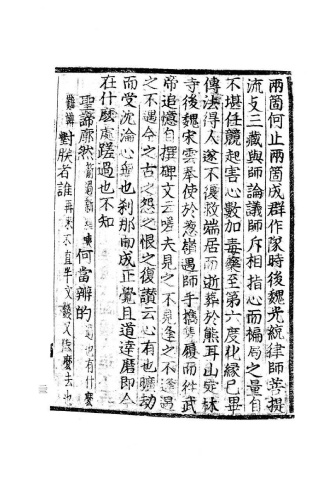 兩箇何止兩箇成群作隊時後魏光統律師菩提
流支三藏與師論議師斥相指心而褊局之量自
不堪任競起害心數加毒藥至第六度化緣已畢
傳法得人遂不復救端居而逝葬於熊耳山定林
寺後魏宋雲奉使於葱嶺遇師手攜隻履而往武
帝追憶自撰碑文云嗟夫見之不見逢之不逢遇
之不遇今之古之怨之恨之復讚云心有也曠劫
而受沈淪心無也剎那而成正覺且道達磨即今
在什麼處蹉過也不知
聖諦廓然箭過新羅咦何當辨的過也有什麼
難辨對朕者誰再來不直半文錢又恁麼去也